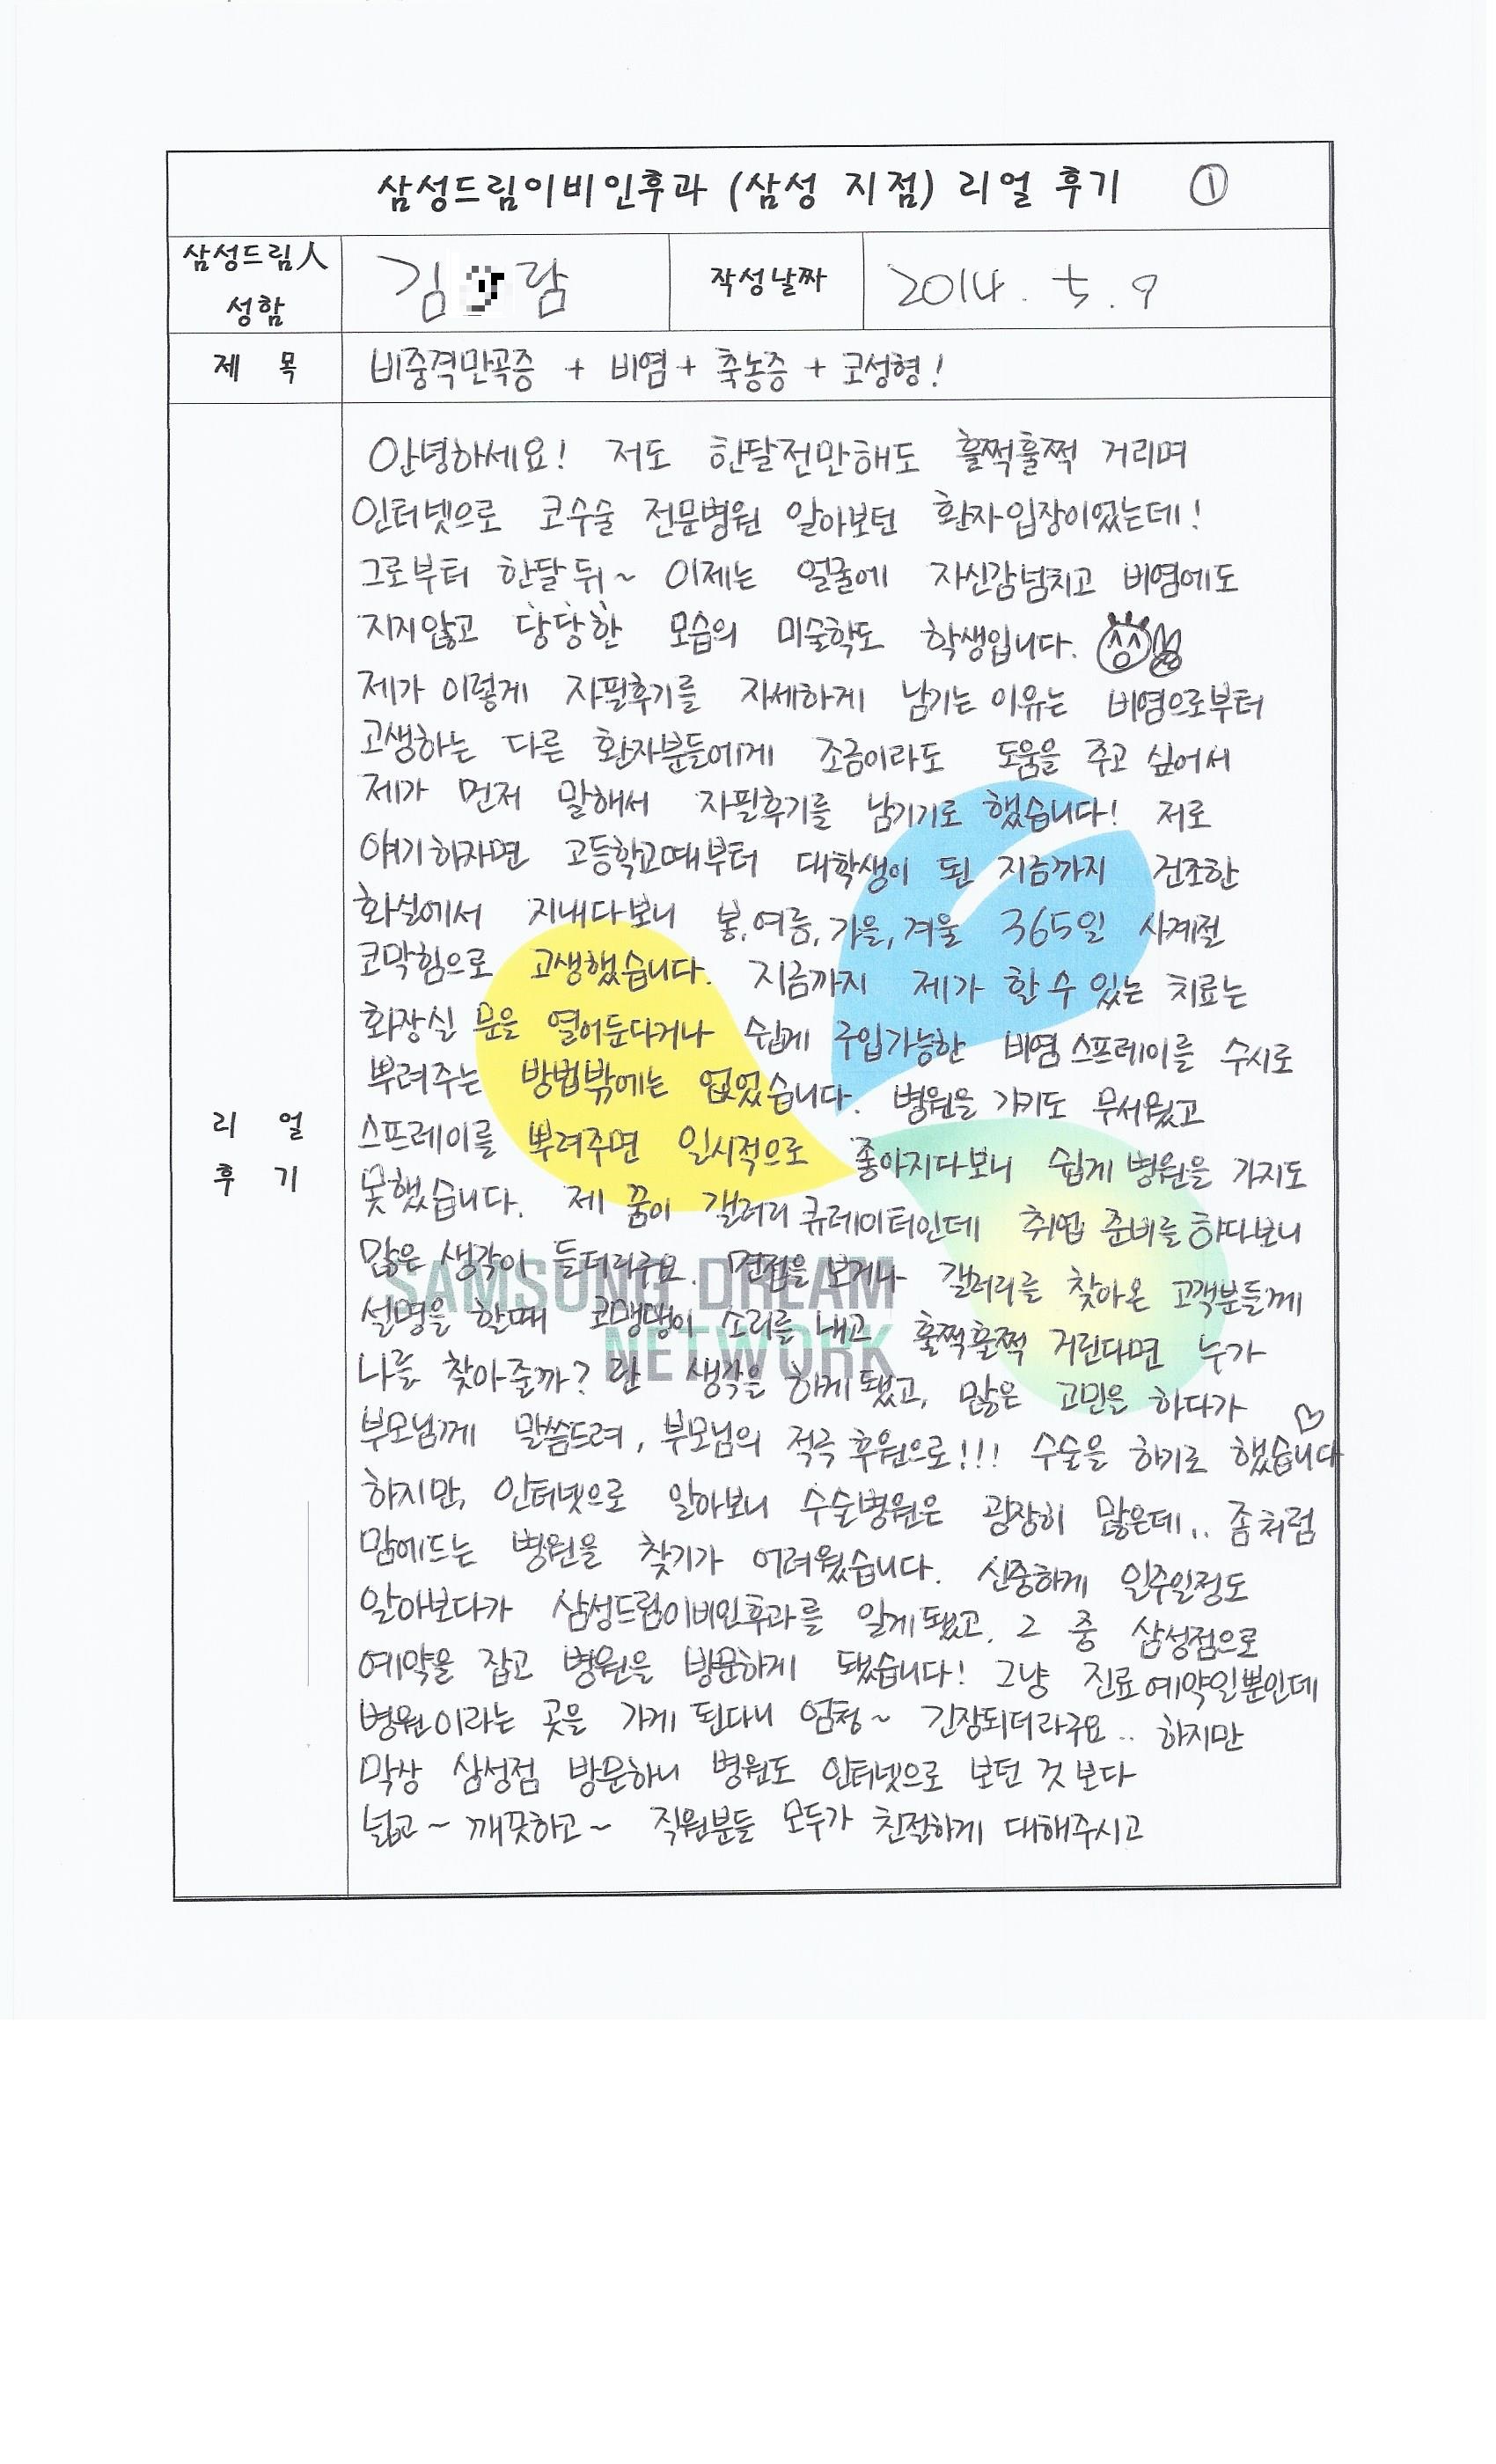 삼성드림이비인후과 (삼성 지점) 리얼 후기 ①
삼성드림人
성함
김 람
작성날짜
2014. 5. 9
제 목
비중격만곡증 + 비염 + 축농증 + 코성형!
리 얼
후 기
안녕하세요! 저도 한달전만해도 훌쩍훌쩍 거리며
인터넷으로 코수술 전문병원 알아보던 환자입장이었는데!
그로부터 한달 뒤~ 이제는 얼굴에 자신감넘치고 비염에도
지지않고 당당한 모습의 미술학도 학생입니다.
제가 이렇게 자필후기를 자세하게 남기는 이유는 비염으로부터
고생하는 다른 환자분들에게 조금이라도 도움을 주고 싶어서
제가 먼저 말해서 자필후기를 남기기로 했습니다! 저로
얘기하자면 고등학교때부터 대학생이 된 지금까지 건조한
화실에서 지내다보니 봄,여름,가을,겨울 365일 사계절
코막힘으로 고생했습니다. 지금까지 제가 할 수 있는 치료는
화장실 문을 열어둔다거나 쉽게 구입가능한 비염 스프레이를 수시로
뿌려주는 방법밖에는 없었습니다. 병원을 가기도 무서웠고
스프레이를 뿌려주면 일시적으로 좋아지다보니 쉽게 병원을 가지도
못했습니다. 제 꿈이 갤러리 큐레이터인데 취업 준비를 하다보니
많은 생각이 들더라구요. 면접을 보거나 갤러리를 찾아온 고객분들께
설명을 할때 코맹맹이 소리를 내고 훌쩍훌쩍 거린다면 누가
나를 찾아줄까? 란 생각을 하게됐고, 많은 고민을 하다가
부모님께 말씀드려, 부모님의 적극 후원으로!!! 수술을 하기로 했습니다♡
하지만, 인터넷으로 알아보니 수술병원은 굉장히 많은데.. 좀처럼
맘에드는 병원을 찾기가 어려웠습니다. 신중하게 일주일정도
알아보다가 삼성드림이비인후과를 알게됐고, 그 중 삼성점으로
예약을 잡고 병원을 방문하게 됐습니다! 그냥 진료예약일뿐인데
병원이라는 곳을 가게 된다니 엄청~ 긴장되더라구요.. 하지만
막상 삼성점 방문하니 병원도 인터넷으로 보던 것 보다
넓고~ 깨끗하고~ 직원분들 모두가 친절하게 대해주시고
SAMSUNG DREAM
NETWORK